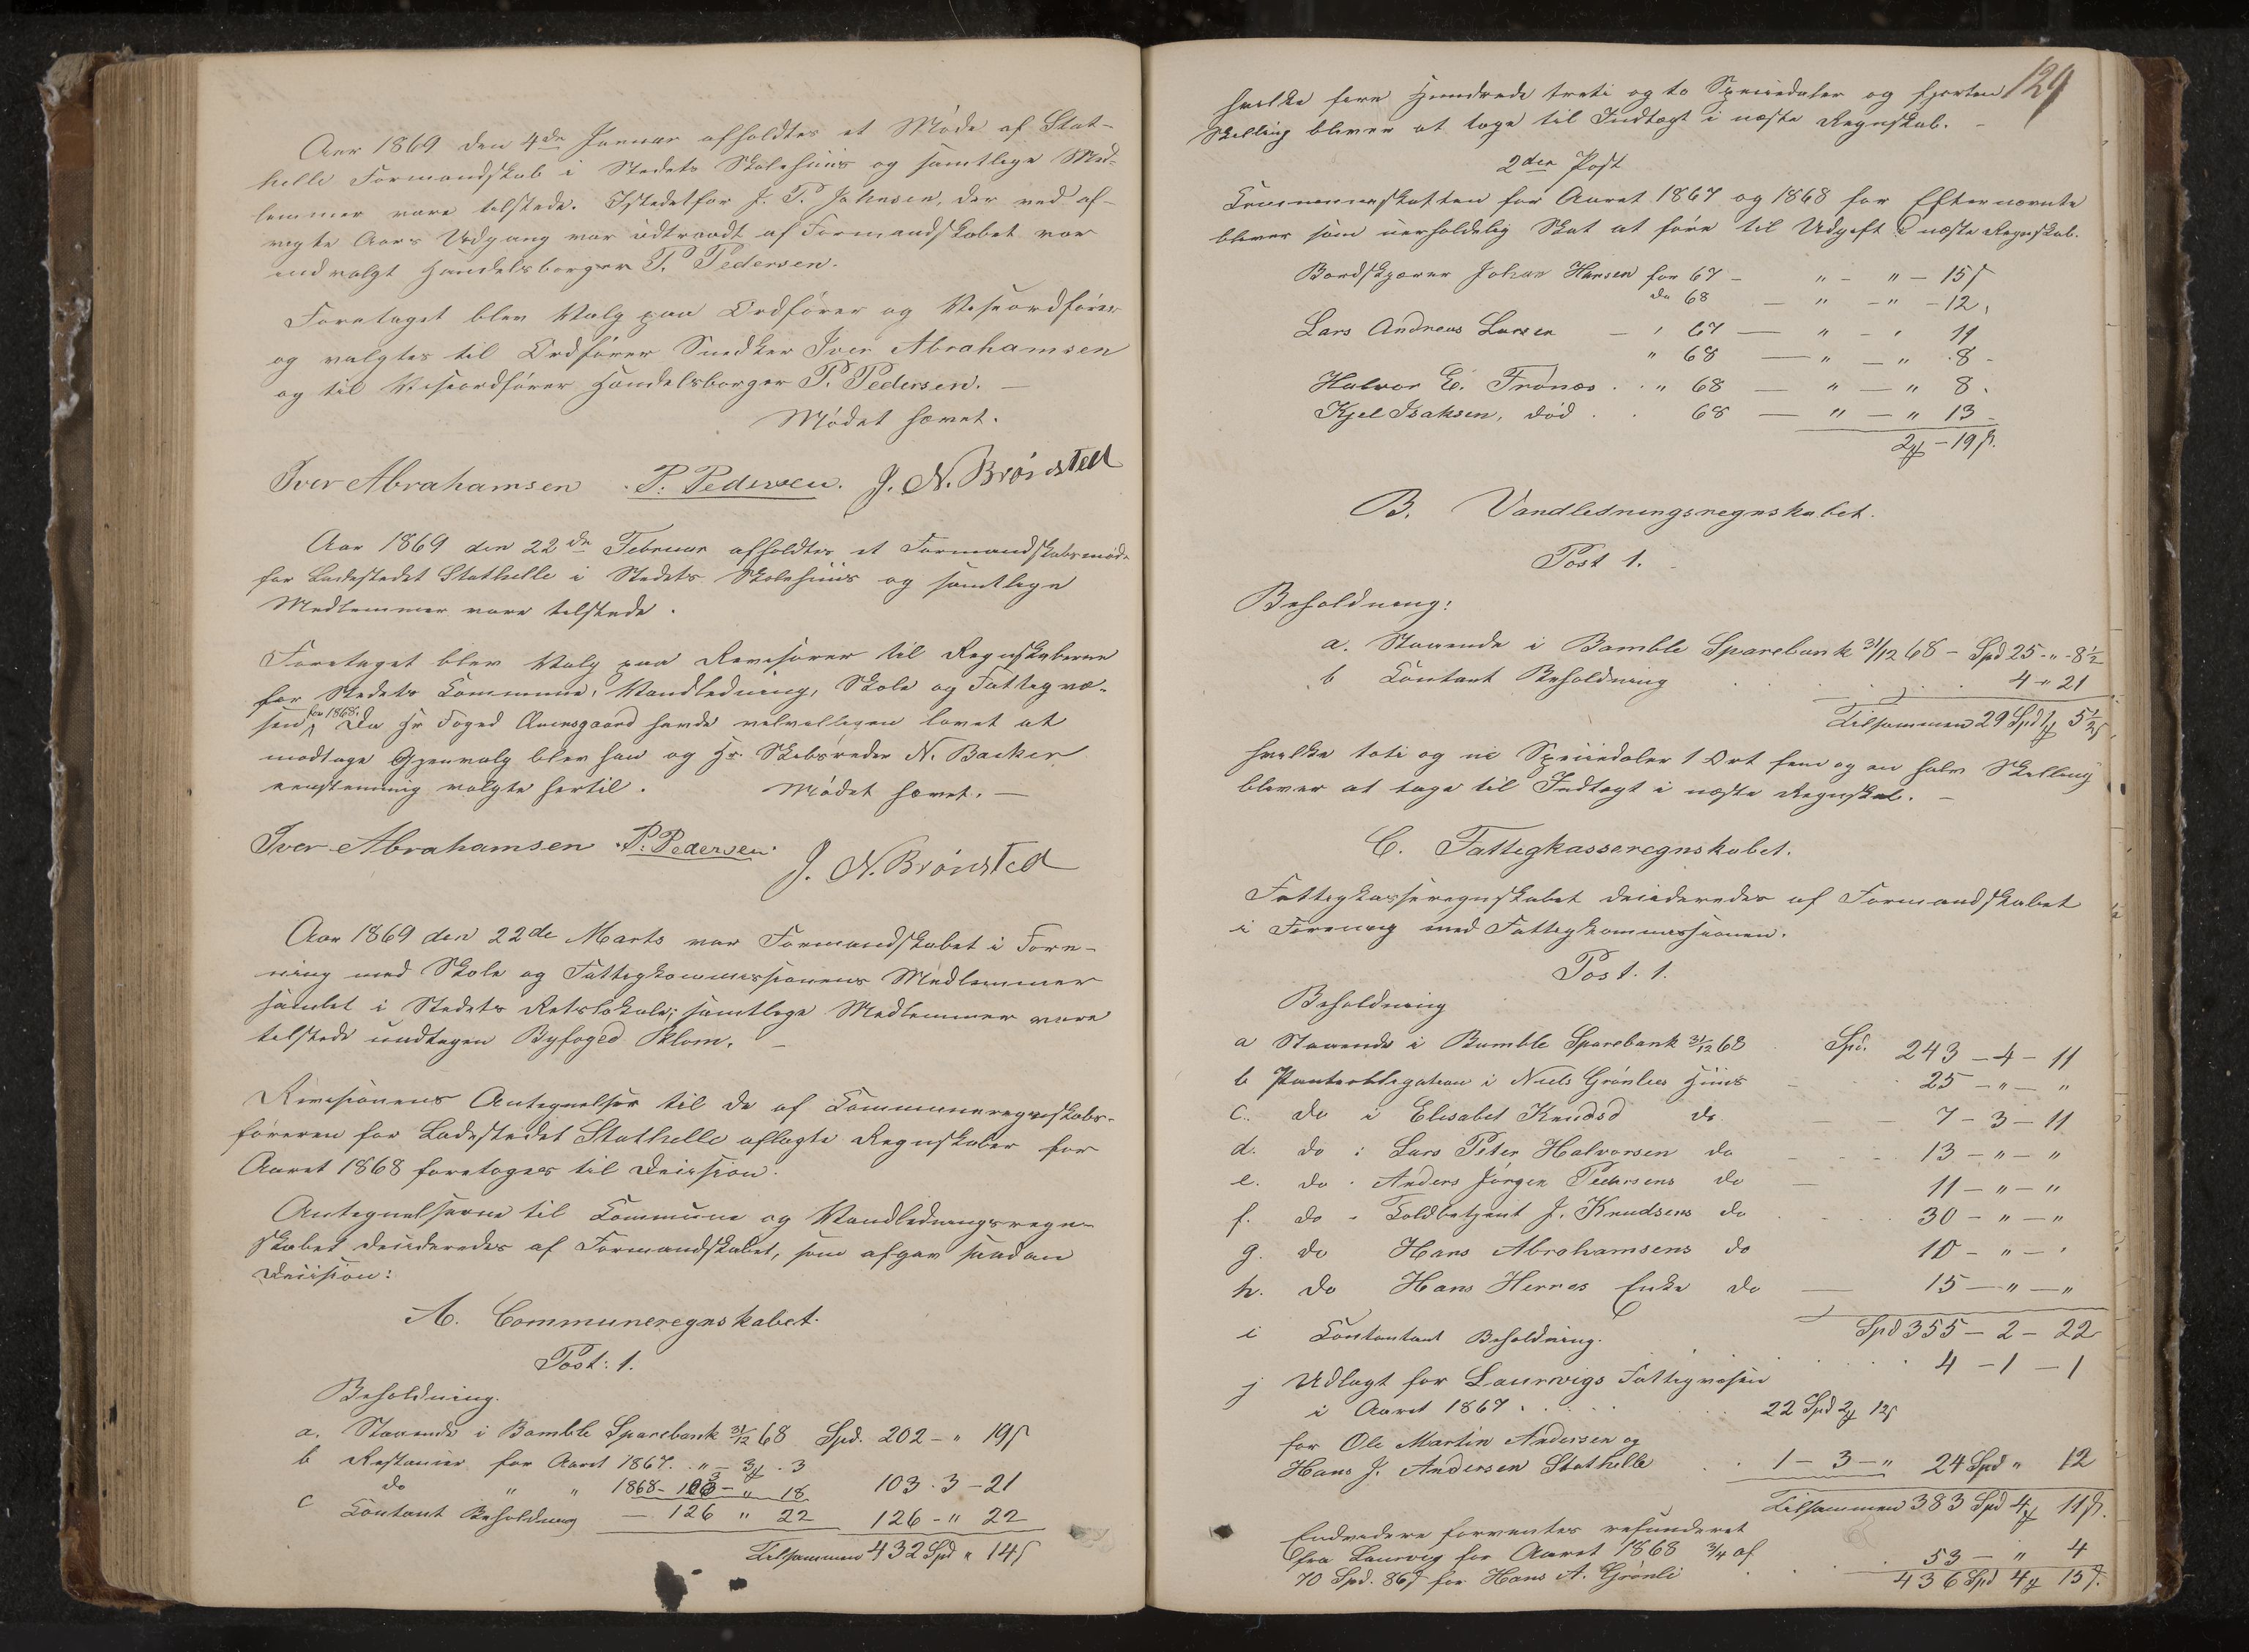 Aar 1869 den 4de Januar afholdtes et Møde af Stat-
helle Formandskab i Stedets Skolehuus og samtlige Med-
lemmer vare tilstede. Istedetfor J. P. Johnsen, der ved af-
vigte Aars Udgang var udtraadt af Formandskabet var
indvalgt Handelsborger P. Pedersen.
Foretaget blev Valg paa Ordfører og Viseordfører
og valgtes til Ordfører Snedker Iver Abrahamsen
og til Viseordfører Handelsborger P. Pedersen. —
Mødet hævet.
Iver Abrahamsen P. Pedersen. J. N. Brønsted
Aar 1869 den 22de Februar afholdtes et Formandskabsmøde
for Ladestedet Stathelle i Stedets Skolehuus og samtlige
Medlemmer vare tilstede.
Foretaget blev Valg paa Revisorer til Regnskaberne
for Stedets Commune, Vandledning, Skole og Fattigvæ-
sen for 1868. Da Hr Foged Aamsgaard havde velvilligen lovet at
modtage Gjenvalg blev han og Hr. Skibsreder N. Backer
eenstemmig valgte hertil. Mødet hævet. —
Iver Abrahamsen P. Pedersen.
J. N. Brønsted
Aar 1869 den 22de Marts var Formandskabet i Fore-
ning med Skole og Fattigkommissionens Medlemmer
samlet i Stedets Retslokale; samtlige Medlemmer vare
tilstede undtagen Byfoged Blom. —
Revisionens Antegnelser til de af Communeregnskabs-
føreren for Ladestedet Stathelle aflagte Regnskaber for
Aaret 1868 foretoges til Decision.
Antegnelserne til Commune og Vandledningsregn-
skabet decideredes af Formandskabet, som afgav saadan
Decision:
A. Communeregnskabet.
Post: 1.
Beholdning.
a. Staaende i Bamble Sparebank 31/12 68 Spd. 202 - " 19ß
b Restancer for Aaret 1867. . " - 3 . 3
do " " 1868 - 103 - " 18 103 . 3 - 21
c Contant Beholdning — 126 " 22 126 - " 22
Tilsammen 432 Spd " 14ß
129
hvilke fire Hundrede treti og to Speciedaler og fjorten
Skilling bliver at tage til Indtægt i næste Regnskab. —
2den Post
Communeskatten for Aaret 1867 og 1868 for Efternævnte
bliver som uerholdelig Skat at føre til Udgift i næste Regnskab.
Bordskjærer Johan Hansen for 67 - " - " - 15ß
do 68 — " - " - 12.
Lars Andreas Larsen — " 67 — " - " 11
" 68 — " — " 8 -
Halvor E. Trønæs . . " 68 — " — " 8.
Kjel Isaksen, død . . 68 — " — " 13 -
2 - 19ß.
B. Vandledningsregnskabet.
Post 1.
Beholdning:
a. Staaende i Bamble Sparebank 31/12 68 - Spd 25 - " - 8½
b Contant Beholdning 4 - " 21
Tilsammen 29 Spd 1 5½ß
hvilke toti og ni Speciedaler 1 Ort fem og en halv Skilling
bliver at tage til Indtægt i næste Regnskab. —
C. Fattigkasseregnskabet.
Fattigkasseregnskabet decideredes af Formandskabet
i Forening med Fattigkommissionen.
Post. 1.
Beholdning
a Staaende i Bamble Sparebank 31/12 68 Spd. 243 - 4 - 11
b Panteobligation i Niels Grønlies Huus 25 - " - "
c. do i Elisabet Knudsd do 7 - 3 - 11
d. do i Lars Peter Halvorsen do 13 - " - "
e. do . Anders Jørgen Pedersens do 11 - " - "
f. do - Toldbetjent J. Knudsens do 30 - " - "
g. do Hans Abrahamsens do 10 - " - "
h. do Hans Herres Enke do 15 - " - "
Spd 355 - 2 - 22
i Contant Beholdning. 4 - 1 - 1
j Udlagt for Laurvigs Fattigvæsen
i Aaret 1867 . . . 22 Spd 2 12ß
for Ole Martin Andersen og
Hans J. Andersen Stathelle 1 - 3 - " 24 Spd " 12
Tilsammen 383 Spd 4 11ß.
Endvidere forventes refunderet
fra Laurvig for Aaret 1868 3/4 af
70 Spd. 86ß for Hans A. Grønli 53 - " 4
436 Spd 4 15ß.